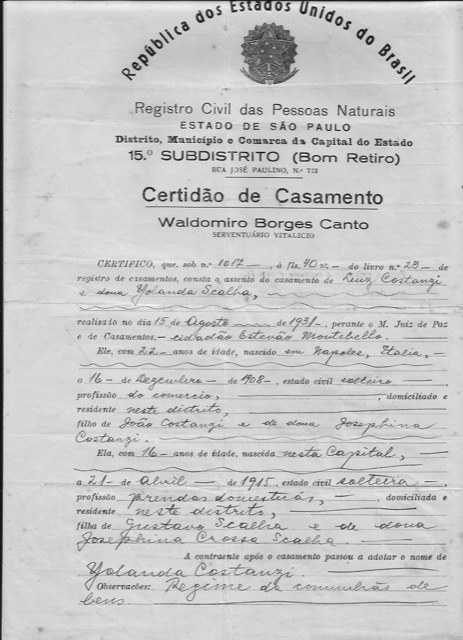 República dos Estados Unidos do Brasil
Registro Civil das Pessoas Naturais
ESTADO DE SÃO PAULO
Distrito, Município e Comarca da Capital do Estado
15.º SUBDISTRITO (Bom Retiro)
RUA JOSÉ PAULINO, N.º 773
Certidão de Casamento
Waldomiro Borges Canto
SERVENTUÁRIO VITALICIO
CERTIFICO, que, sob n.º 1617 -, à fls. 40 v. - do livro n.º 23 - de
registro de casamentos, consta o assento do casamento de Luiz Costanzi
e dona Yolanda Scalha,
realizado no dia 15 de Agosto de 1931 -, perante o M. Juiz de Paz
e de Casamentos, - cidadão Estevão Montebello.
Ele, com 22 - anos de idade, nascido em Napoles, Italia, -
a 16 - de Dezembro - de 1908 -, estado civil solteiro -
profissão do comercio, -, domiciliado e
residente neste distrito,
filho de João Costanzi e de dona Josephina
Costanzi.
Ela, com 16 - anos de idade, nascida nesta Capital, -
a 21 - de Abril - de 1915, estado civil solteira -,
profissão prendas domesticas, -, domiciliada e
residente neste distrito,
filha de Gustavo Scalha e de dona
Josephina Crossa Scalha.
A contraente após o casamento passou a adotar o nome de
Yolanda Costanzi.
Observações: Regime de comunhão de
bens.